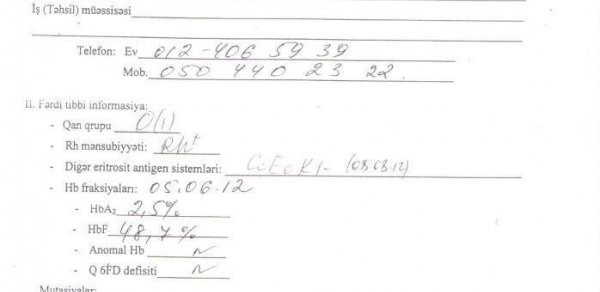 İş (Təhsil) müəssisəsi
Telefon: Ev 012-406 59 39
Mob. 050 440 23 22
II. Fərdi tibbi informasiya:
- Qan qrupu O(I)
- Rh mənsubiyyəti: Rh+
- Digər eritrosit antigen sistemləri: CcEeK1- (08.08.12)
- Hb fraksiyaları: 05.06.12
- HbA₂ 2,5%
- HbF 48,7%
- Anomal Hb N
- Q 6FD defisiti N
Mutasiyalar: